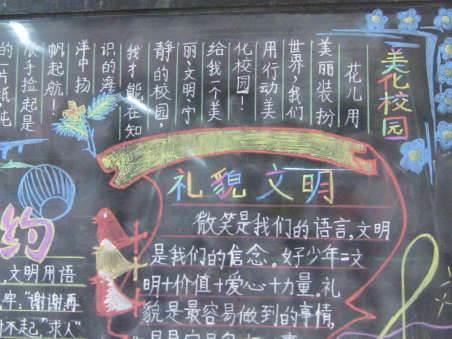 美化校园
花儿用
美丽装扮
世界,我们
用行动美
化校园!
给我一个美
丽、文明、宁
静的校园,
我才能在知
识的海
洋中扬
帆起航!
手捡起是
的一片纸,纯
礼貌 文明
微笑是我们的语言,文明
是我们的信念。好少年=文
明+价值+爱心+力量。礼
貌是最容易做到的事情,
约
,文明用语
"谢谢再
不起"求人"